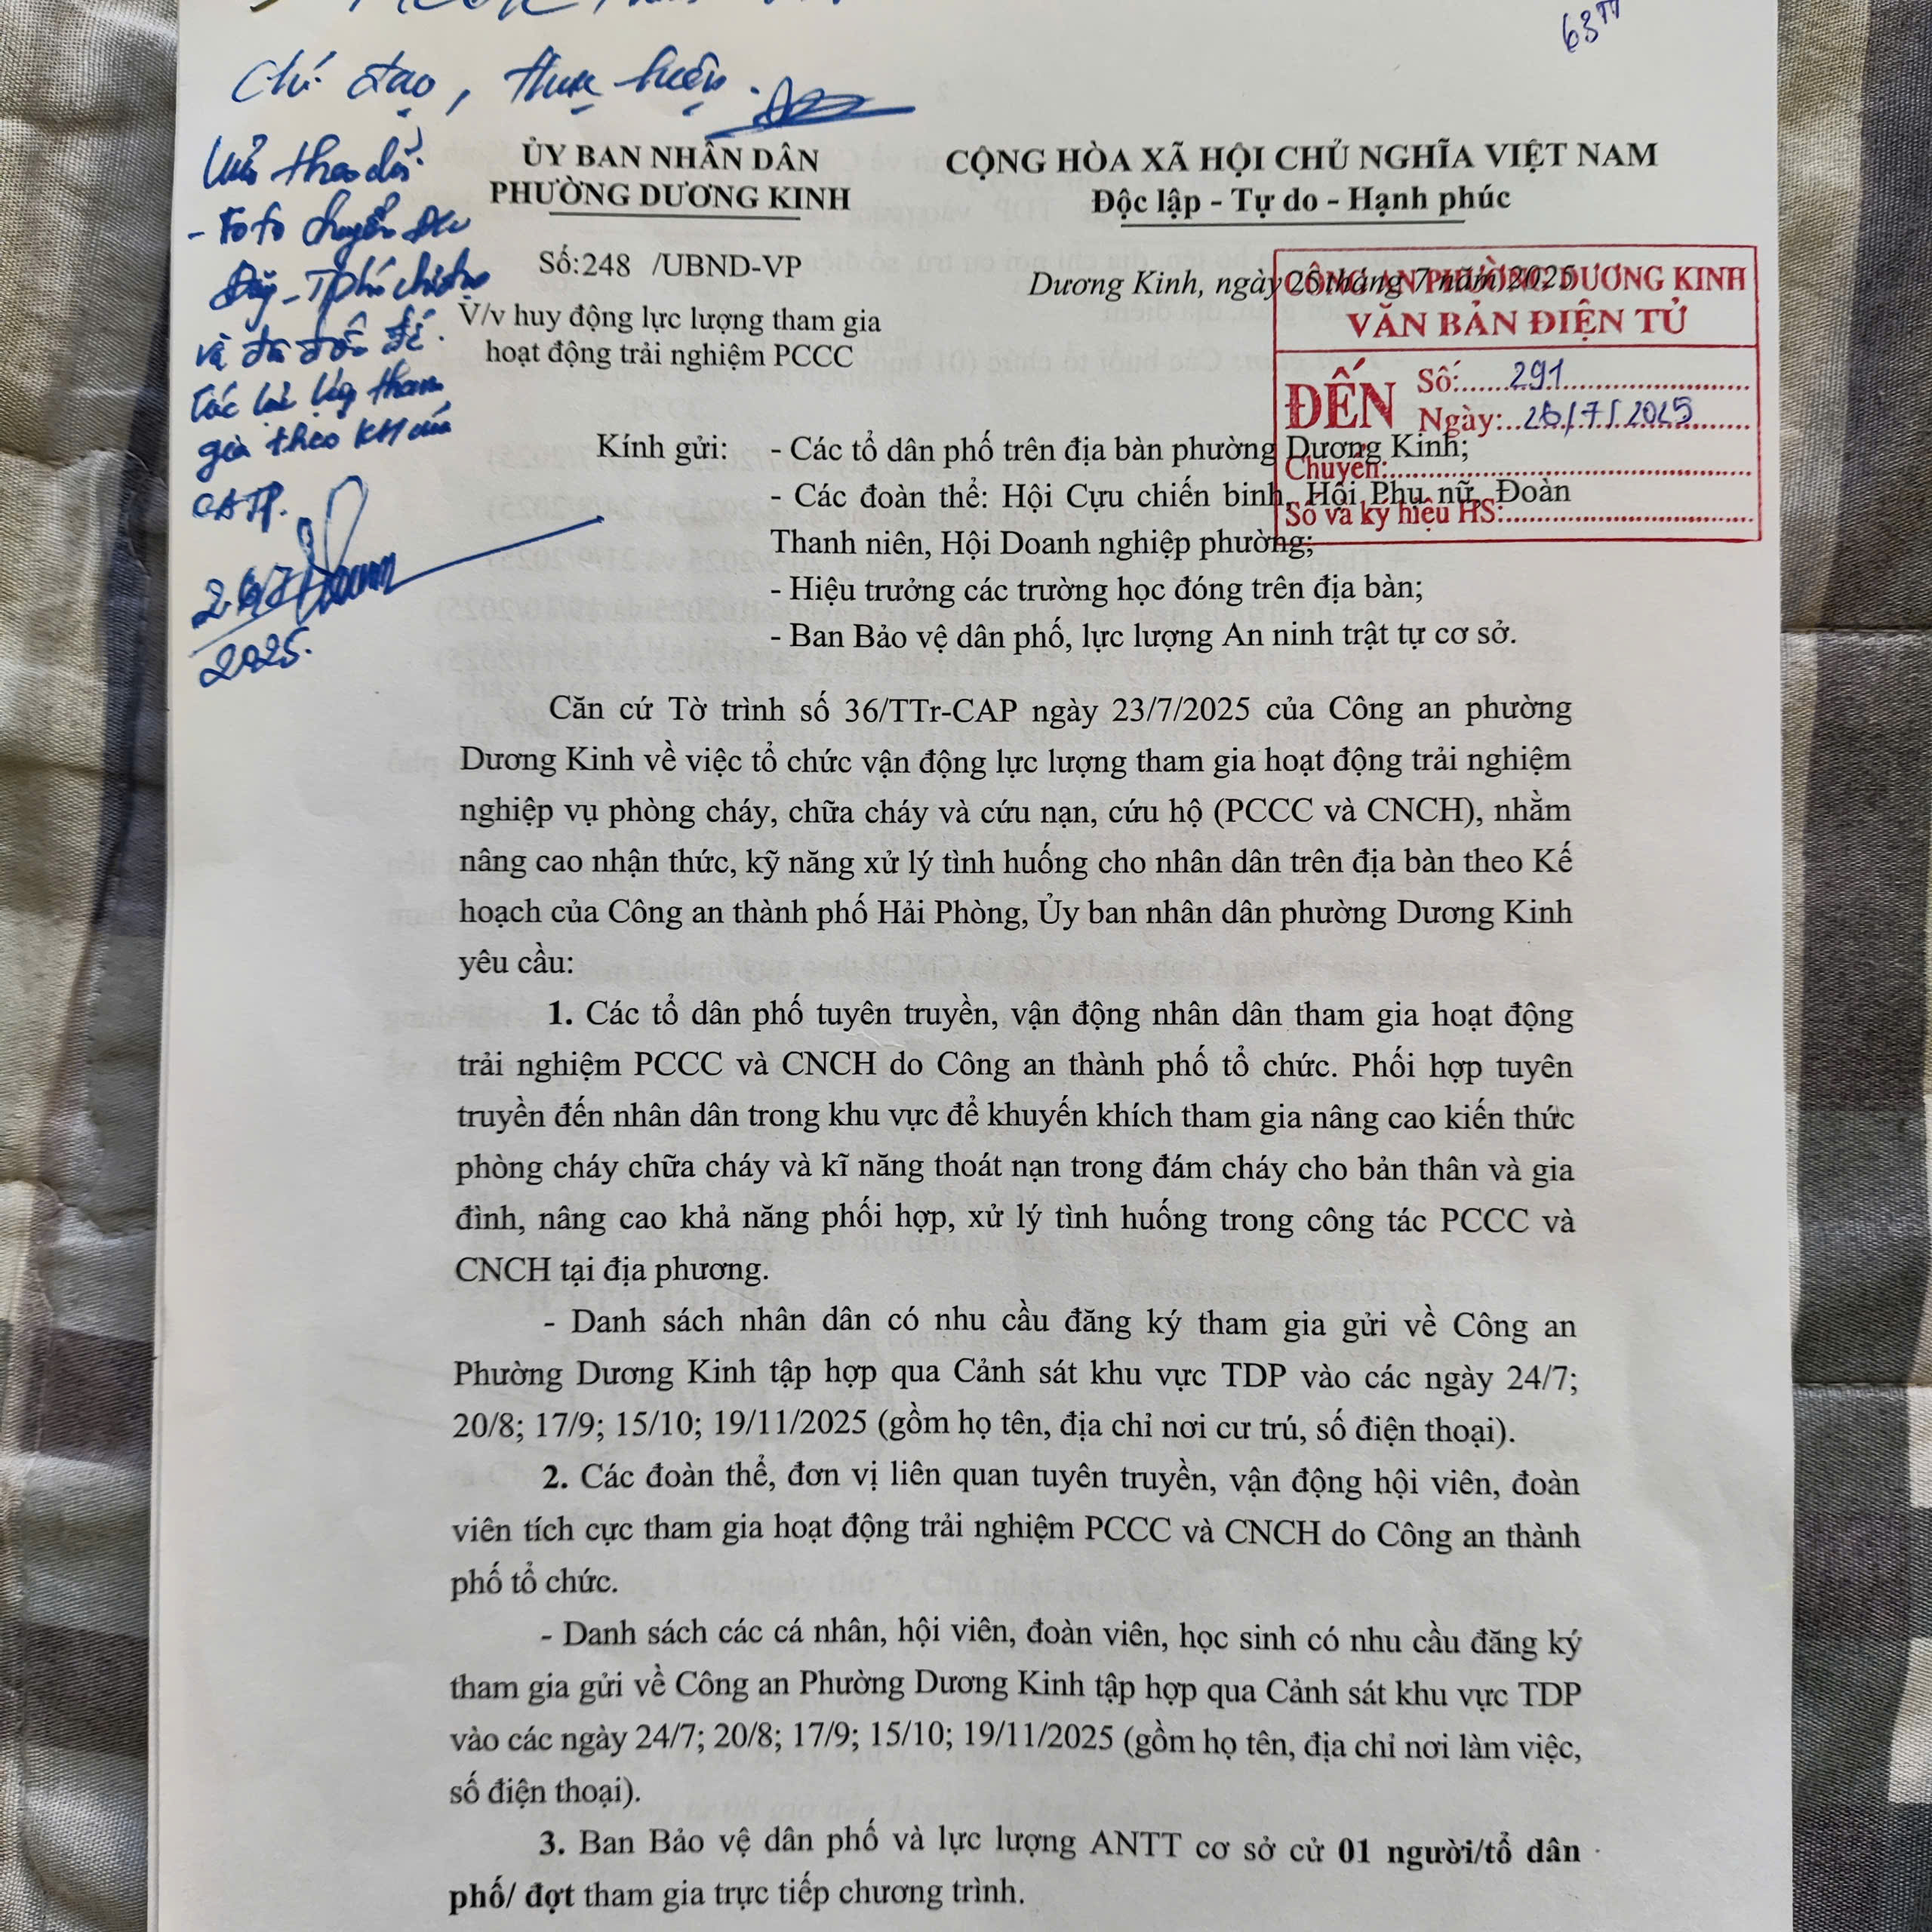 63
Chỉ đạo, thực hiện.
Lưu theo dõi.
- Foto chuyển
và
lực lượng tham
gia theo KH của
CATP.
2025.
ỦY BAN NHÂN DÂN
PHƯỜNG DƯƠNG KINH
CỘNG HÒA XÃ HỘI CHỦ NGHĨA VIỆT NAM
Độc lập - Tự do - Hạnh phúc
Số:248 /UBND-VP
Dương Kinh, ngày 26 tháng 7 năm 2025
V/v huy động lực lượng tham gia
hoạt động trải nghiệm PCCC
CÔNG AN PHƯỜNG DƯƠNG KINH
VĂN BẢN ĐIỆN TỬ
ĐẾN
Số:......291......
Ngày:...26/7/2025
Chuyển:......
Số và ký hiệu HS:......
Kính gửi: - Các tổ dân phố trên địa bàn phường Dương Kinh;
- Các đoàn thể: Hội Cựu chiến binh, Hội Phụ nữ, Đoàn
Thanh niên, Hội Doanh nghiệp phường;
- Hiệu trưởng các trường học đóng trên địa bàn;
- Ban Bảo vệ dân phố, lực lượng An ninh trật tự cơ sở.
Căn cứ Tờ trình số 36/TTr-CAP ngày 23/7/2025 của Công an phường
Dương Kinh về việc tổ chức vận động lực lượng tham gia hoạt động trải nghiệm
nghiệp vụ phòng cháy, chữa cháy và cứu nạn, cứu hộ (PCCC và CNCH), nhằm
nâng cao nhận thức, kỹ năng xử lý tình huống cho nhân dân trên địa bàn theo Kế
hoạch của Công an thành phố Hải Phòng, Ủy ban nhân dân phường Dương Kinh
yêu cầu:
1. Các tổ dân phố tuyên truyền, vận động nhân dân tham gia hoạt động
trải nghiệm PCCC và CNCH do Công an thành phố tổ chức. Phối hợp tuyên
truyền đến nhân dân trong khu vực để khuyến khích tham gia nâng cao kiến thức
phòng cháy chữa cháy và kĩ năng thoát nạn trong đám cháy cho bản thân và gia
đình, nâng cao khả năng phối hợp, xử lý tình huống trong công tác PCCC và
CNCH tại địa phương.
- Danh sách nhân dân có nhu cầu đăng ký tham gia gửi về Công an
Phường Dương Kinh tập hợp qua Cảnh sát khu vực TDP vào các ngày 24/7;
20/8; 17/9; 15/10; 19/11/2025 (gồm họ tên, địa chỉ nơi cư trú, số điện thoại).
2. Các đoàn thể, đơn vị liên quan tuyên truyền, vận động hội viên, đoàn
viên tích cực tham gia hoạt động trải nghiệm PCCC và CNCH do Công an thành
phố tổ chức.
- Danh sách các cá nhân, hội viên, đoàn viên, học sinh có nhu cầu đăng ký
tham gia gửi về Công an Phường Dương Kinh tập hợp qua Cảnh sát khu vực TDP
vào các ngày 24/7; 20/8; 17/9; 15/10; 19/11/2025 (gồm họ tên, địa chỉ nơi làm việc,
số điện thoại).
3. Ban Bảo vệ dân phố và lực lượng ANTT cơ sở cử 01 người/tổ dân
phố/ đợt tham gia trực tiếp chương trình.